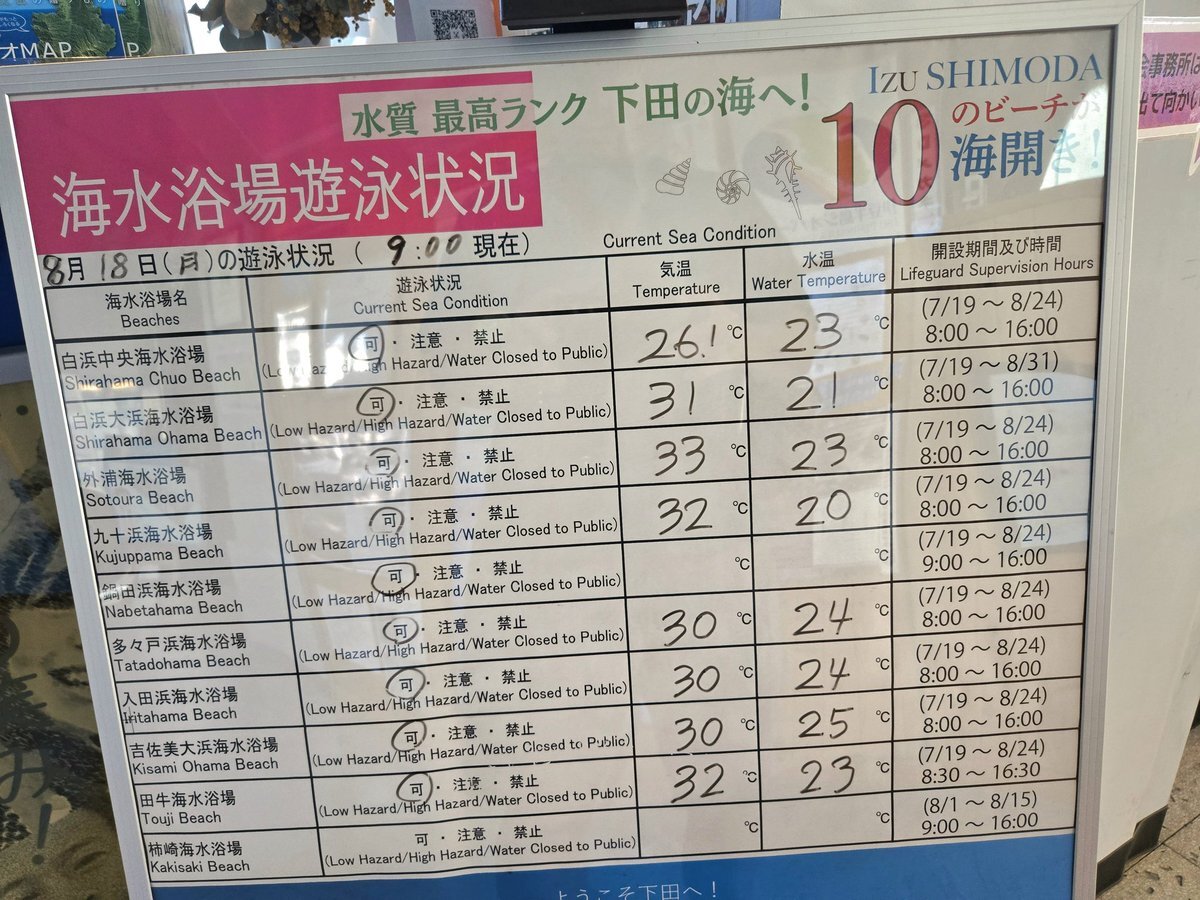 オMAP
P
水質 最高ランク 下田の海へ!
IZU SHIMODA
10のビーチが
海開き!
海水浴場遊泳状況
8月18日(月)の遊泳状況 ( 9:00 現在)
Current Sea Condition
海水浴場名
Beaches
遊泳状況
Current Sea Condition
気温
Temperature
水温
Water Temperature
開設期間及び時間
Lifeguard Supervision Hours
白浜中央海水浴場
Shirahama Chuo Beach
可・注意・禁止
(Low Hazard/High Hazard/Water Closed to Public)
26.1℃
23℃
(7/19 ～ 8/24)
8:00 ～ 16:00
白浜大浜海水浴場
Shirahama Ohama Beach
可・注意・禁止
(Low Hazard/High Hazard/Water Closed to Public)
31℃
21℃
(7/19 ～ 8/31)
8:00 ～ 16:00
外浦海水浴場
Sotoura Beach
可・注意・禁止
(Low Hazard/High Hazard/Water Closed to Public)
33℃
23℃
(7/19 ～ 8/24)
8:00 ～ 16:00
九十浜海水浴場
Kujuppama Beach
可・注意・禁止
(Low Hazard/High Hazard/Water Closed to Public)
32℃
20℃
(7/19 ～ 8/24)
8:00 ～ 16:00
鍋田浜海水浴場
Nabetahama Beach
可・注意・禁止
(Low Hazard/High Hazard/Water Closed to Public)
℃
℃
(7/19 ～ 8/24)
9:00 ～ 16:00
多々戸浜海水浴場
Tatadohama Beach
可・注意・禁止
(Low Hazard/High Hazard/Water Closed to Public)
30℃
24℃
(7/19 ～ 8/24)
8:00 ～ 16:00
入田浜海水浴場
Iritahama Beach
可・注意・禁止
(Low Hazard/High Hazard/Water Closed to Public)
30℃
24℃
(7/19 ～ 8/24)
8:00 ～ 16:00
吉佐美大浜海水浴場
Kisami Ohama Beach
可・注意・禁止
(Low Hazard/High Hazard/Water Closed to Public)
30℃
25℃
(7/19 ～ 8/24)
8:00 ～ 16:00
田牛海水浴場
Touji Beach
可・注意・禁止
(Low Hazard/High Hazard/Water Closed to Public)
32℃
23℃
(7/19 ～ 8/24)
8:30 ～ 16:30
柿崎海水浴場
Kakisaki Beach
可・注意・禁止
(Low Hazard/High Hazard/Water Closed to Public)
℃
℃
(8/1 ～ 8/15)
9:00 ～ 16:00
ようこそ下田へ!
会事務所は
出て向かい
み!